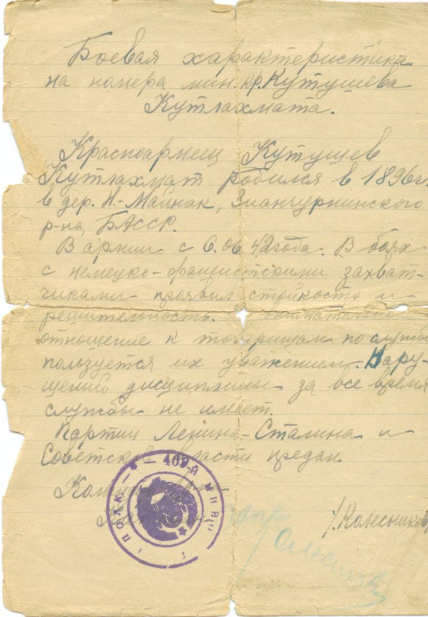 Боевая характеристика
на номера мин. кр. Кутушева
Кутлахмата.
Красноармеец Кутушев
Кутлахмат родился в 1896 г.
в дер. И-Майнак, Зианчуринского
р-на, БАССР.
В армии с 6.06.42 года. В боях
с немецко-фашистскими захват-
чиками проявил стойкость и
решительность.
отношение к товарищам по службе
пользуется их уважением. Нару-
щений дисциплины за все время
службы не имеет.
Партии Ленина-Сталина и
Советской власти предан.
469-й МИН
ПОЛК
Колесников